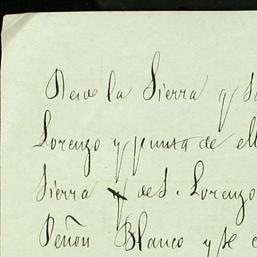 Desde la Sierra y S
Lorenzo y punta de ell
Sierra y de S. Lorenzo
Peñon Blanco y se